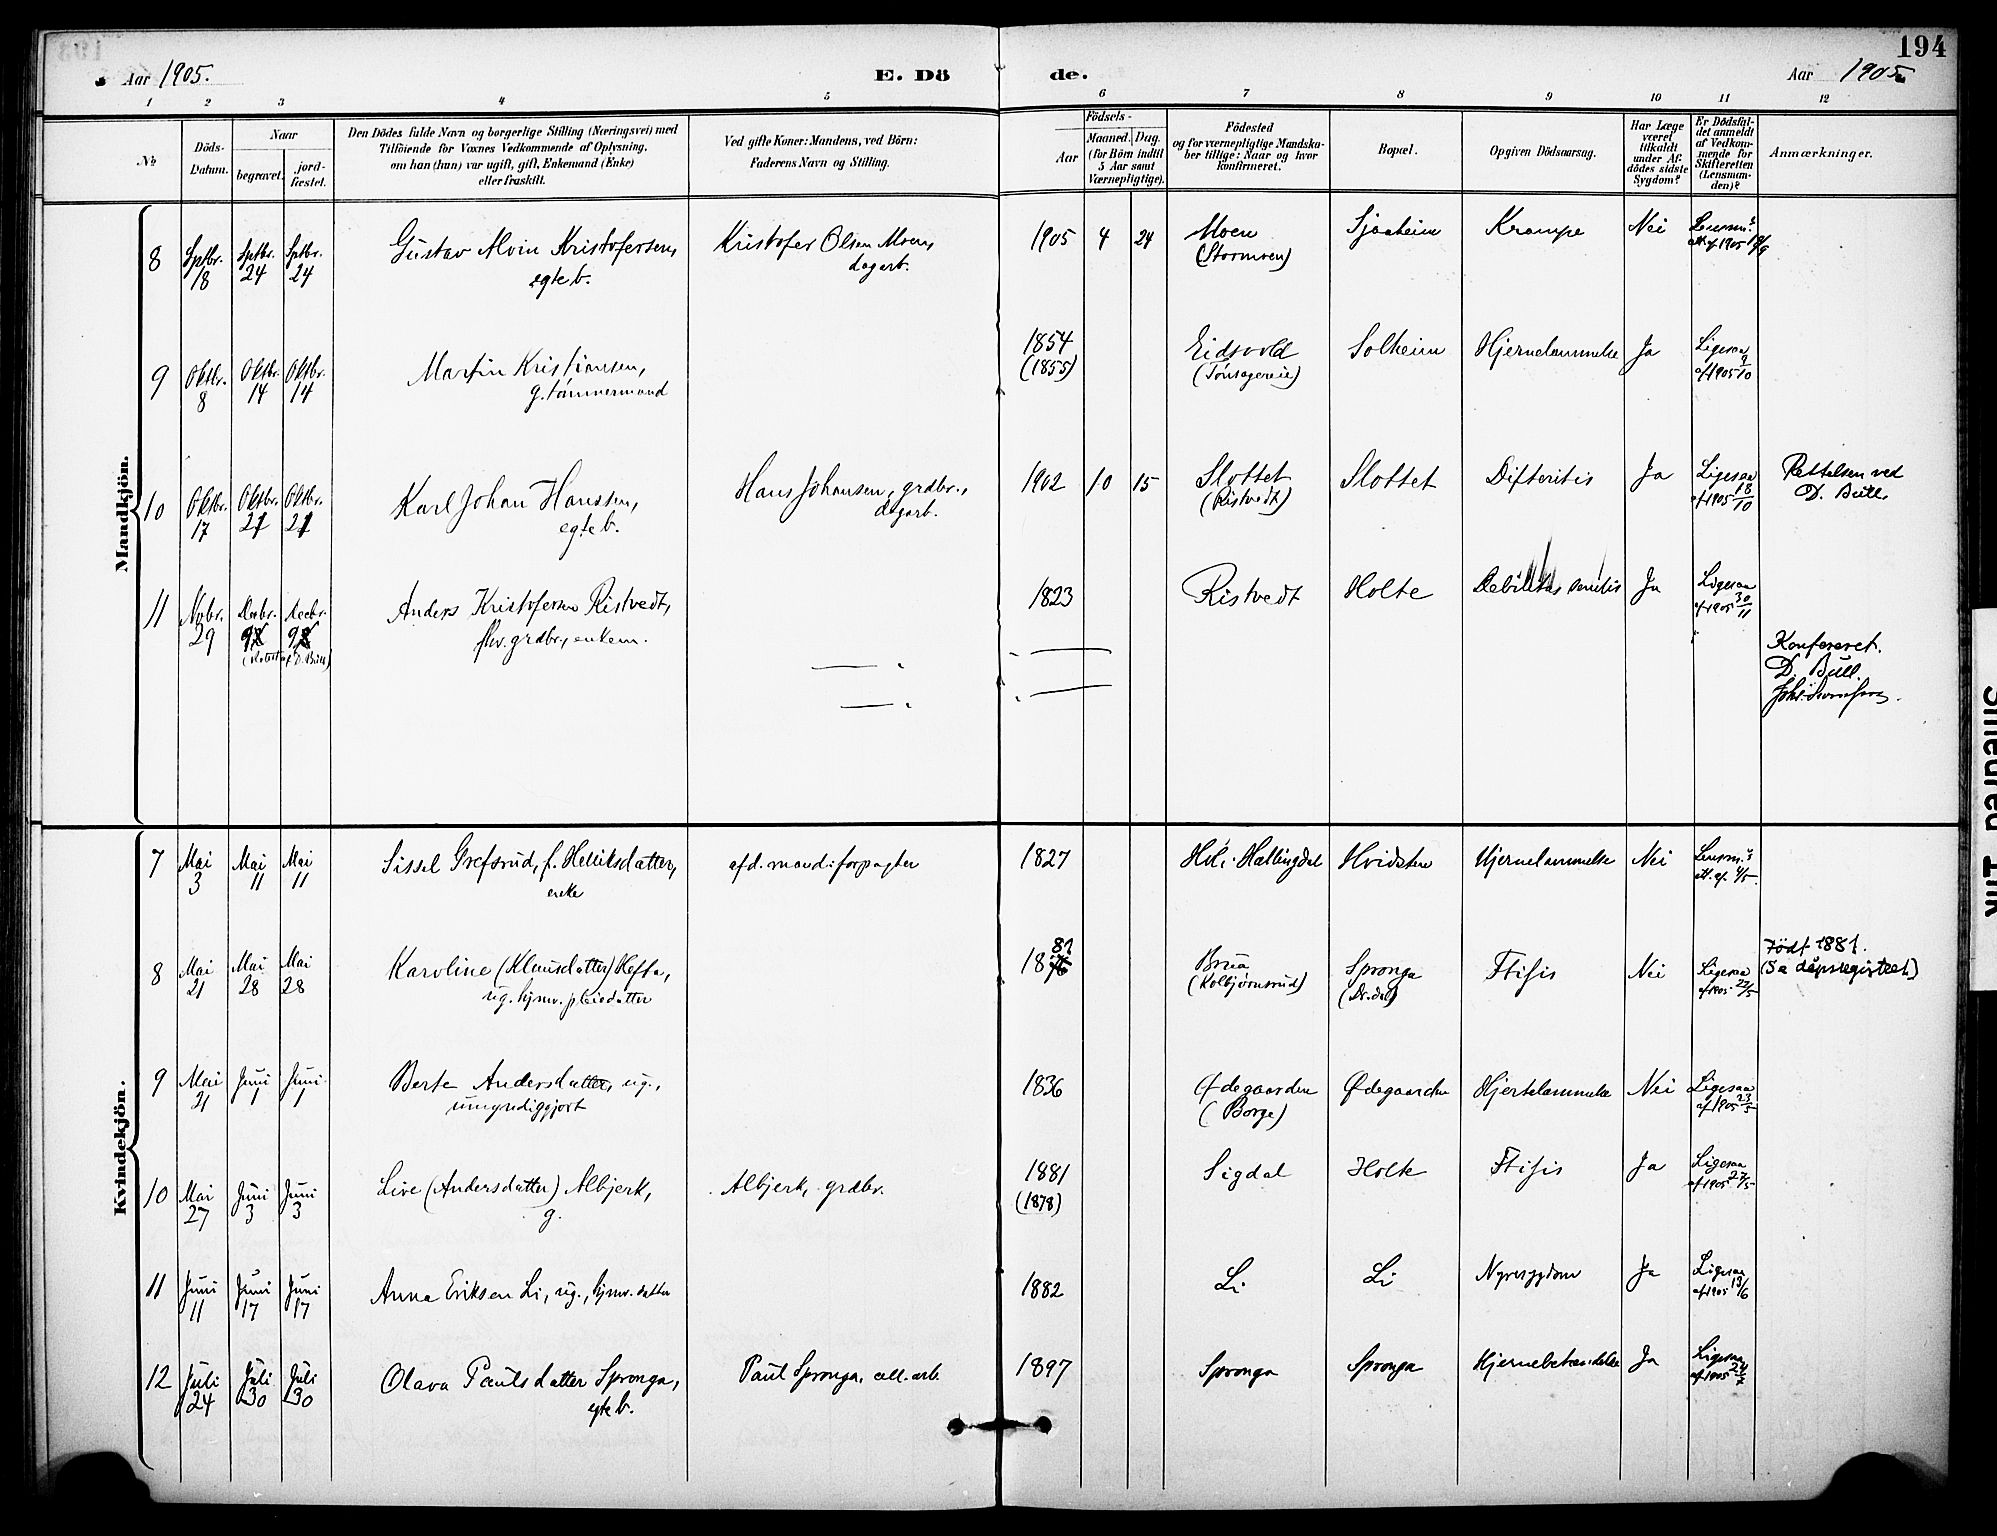 194
Aar 1905.
E. Dö
de.
Aar 1905
1 2 3 4 5 6 7 8 9 10 11 12
No
Döds-Datum.
Naar
begravet.
jord-fæstet.
Den Dödes fulde Navn og borgerlige Stilling (Næringsvei) med
Tilföiende for Voxnes Vedkommende af Oplysning,
om han (hun) var ugift, gift, Enkemand (Enke)
eller fraskilt.
Ved gifte Koner: Mandens, ved Börn:
Faderens Navn og Stilling.
Födsels-
Aar
Maaned. Dag.
(for Börn indtil
5 Aar samt
Værnepligtige).
Födested
og for værnepligtige Mandska-
ber tillige: Naar og hvor
konfirmeret.
Bopæl.
Opgiven Dödsaarsag.
Har Læge
været
tilkaldt
under Af-
dödes sidste
Sygdom?
Er Dödsfal-
det anmeldt
af Vedkom-
mende for
Skifteretten
(Lensman-
den)?
Anmærkninger.
Mandkjön.
8 Sptbr. 18 Sptbr. 24 Sptbr. 24 Gustav Alvin Kristofersen, Kristofer Olsen Moen, 1905 4 24 Moen Sjaaheim Krampe Nei Lensm.s
egteb. dagarb. (Stormoen) att. af 1905 19/9
9 Oktbr. 8 Oktbr. 14 Oktbr. 14 Martin Kristiansen, 1854 Eidsvold Solheim Hjernelammelse Ja Ligesaa
g. tømmermand (1855) (Tønsagereie) af 1905 9/10
10 Oktbr. 17 Oktbr. 21 Oktbr. 21 Karl Johan Hanssen, Hans Johansen, grdbr., 1902 10 15 Slottet Slottet Difteritis Ja Ligesaa Rettelsen ved
egteb. dagarb. (Ristvedt) af 1905 18/10 D. Bull.
11 Nvbr. 29 Decbr. 9 Decbr. 9 Anders Kristofersen Ristvedt, 1823 Ristvedt Holte Debilitas senilis Ja Ligesaa
fhv. grdbr., enkem. af 1905 30/11
Konfereret.
D. Bull.
Kvindekjön.
7 Mai 3 Mai 11 Mai 11 Sissel Grefsrud, f. Henriksdatter, afd. mand: forpagter 1827 Hol i Hallingdal Hvidsten Hjernelammelse Nei Lensm.s
enke att. af 4/5.
8 Mai 21 Mai 28 Mai 28 Karoline (Knudsdatter) Hefta, 1881 Brua Spronga Ftisis Nei Ligesaa Født 1881.
ug. hjmv. pleiedatter (Kolbjørnsrud) af 1905 22/5 (Se dåpsregistret)
9 Mai 21 Juni 1 Juni 1 Berte Andersdatter, ug., 1836 Ødegaarden Ødegaarden Hjertelammelse Nei Ligesaa
umyndiggjort (Borge) af 1905 23/5
10 Mai 27 Juni 3 Juni 3 Live (Andersdatter) Albjerk, Albjerk, grdbr. 1881 Sigdal Holte Ftisis Ja Ligesaa
g. (1878) af 1905 27/5
11 Juni 11 Juni 17 Juni 17 Anna Eriksen Li, ug., hjmv. datter 1882 Li Li Nyresygdom Ja Ligesaa
af 1905 13/6
12 Juli 24 Juli 30 Juli 30 Olava Paulsdatter Spronga, Paul Spronga, cell. arb. 1897 Spronga Spronga Hjernebetændelse Ja Ligesaa
egteb. af 1905 24/7